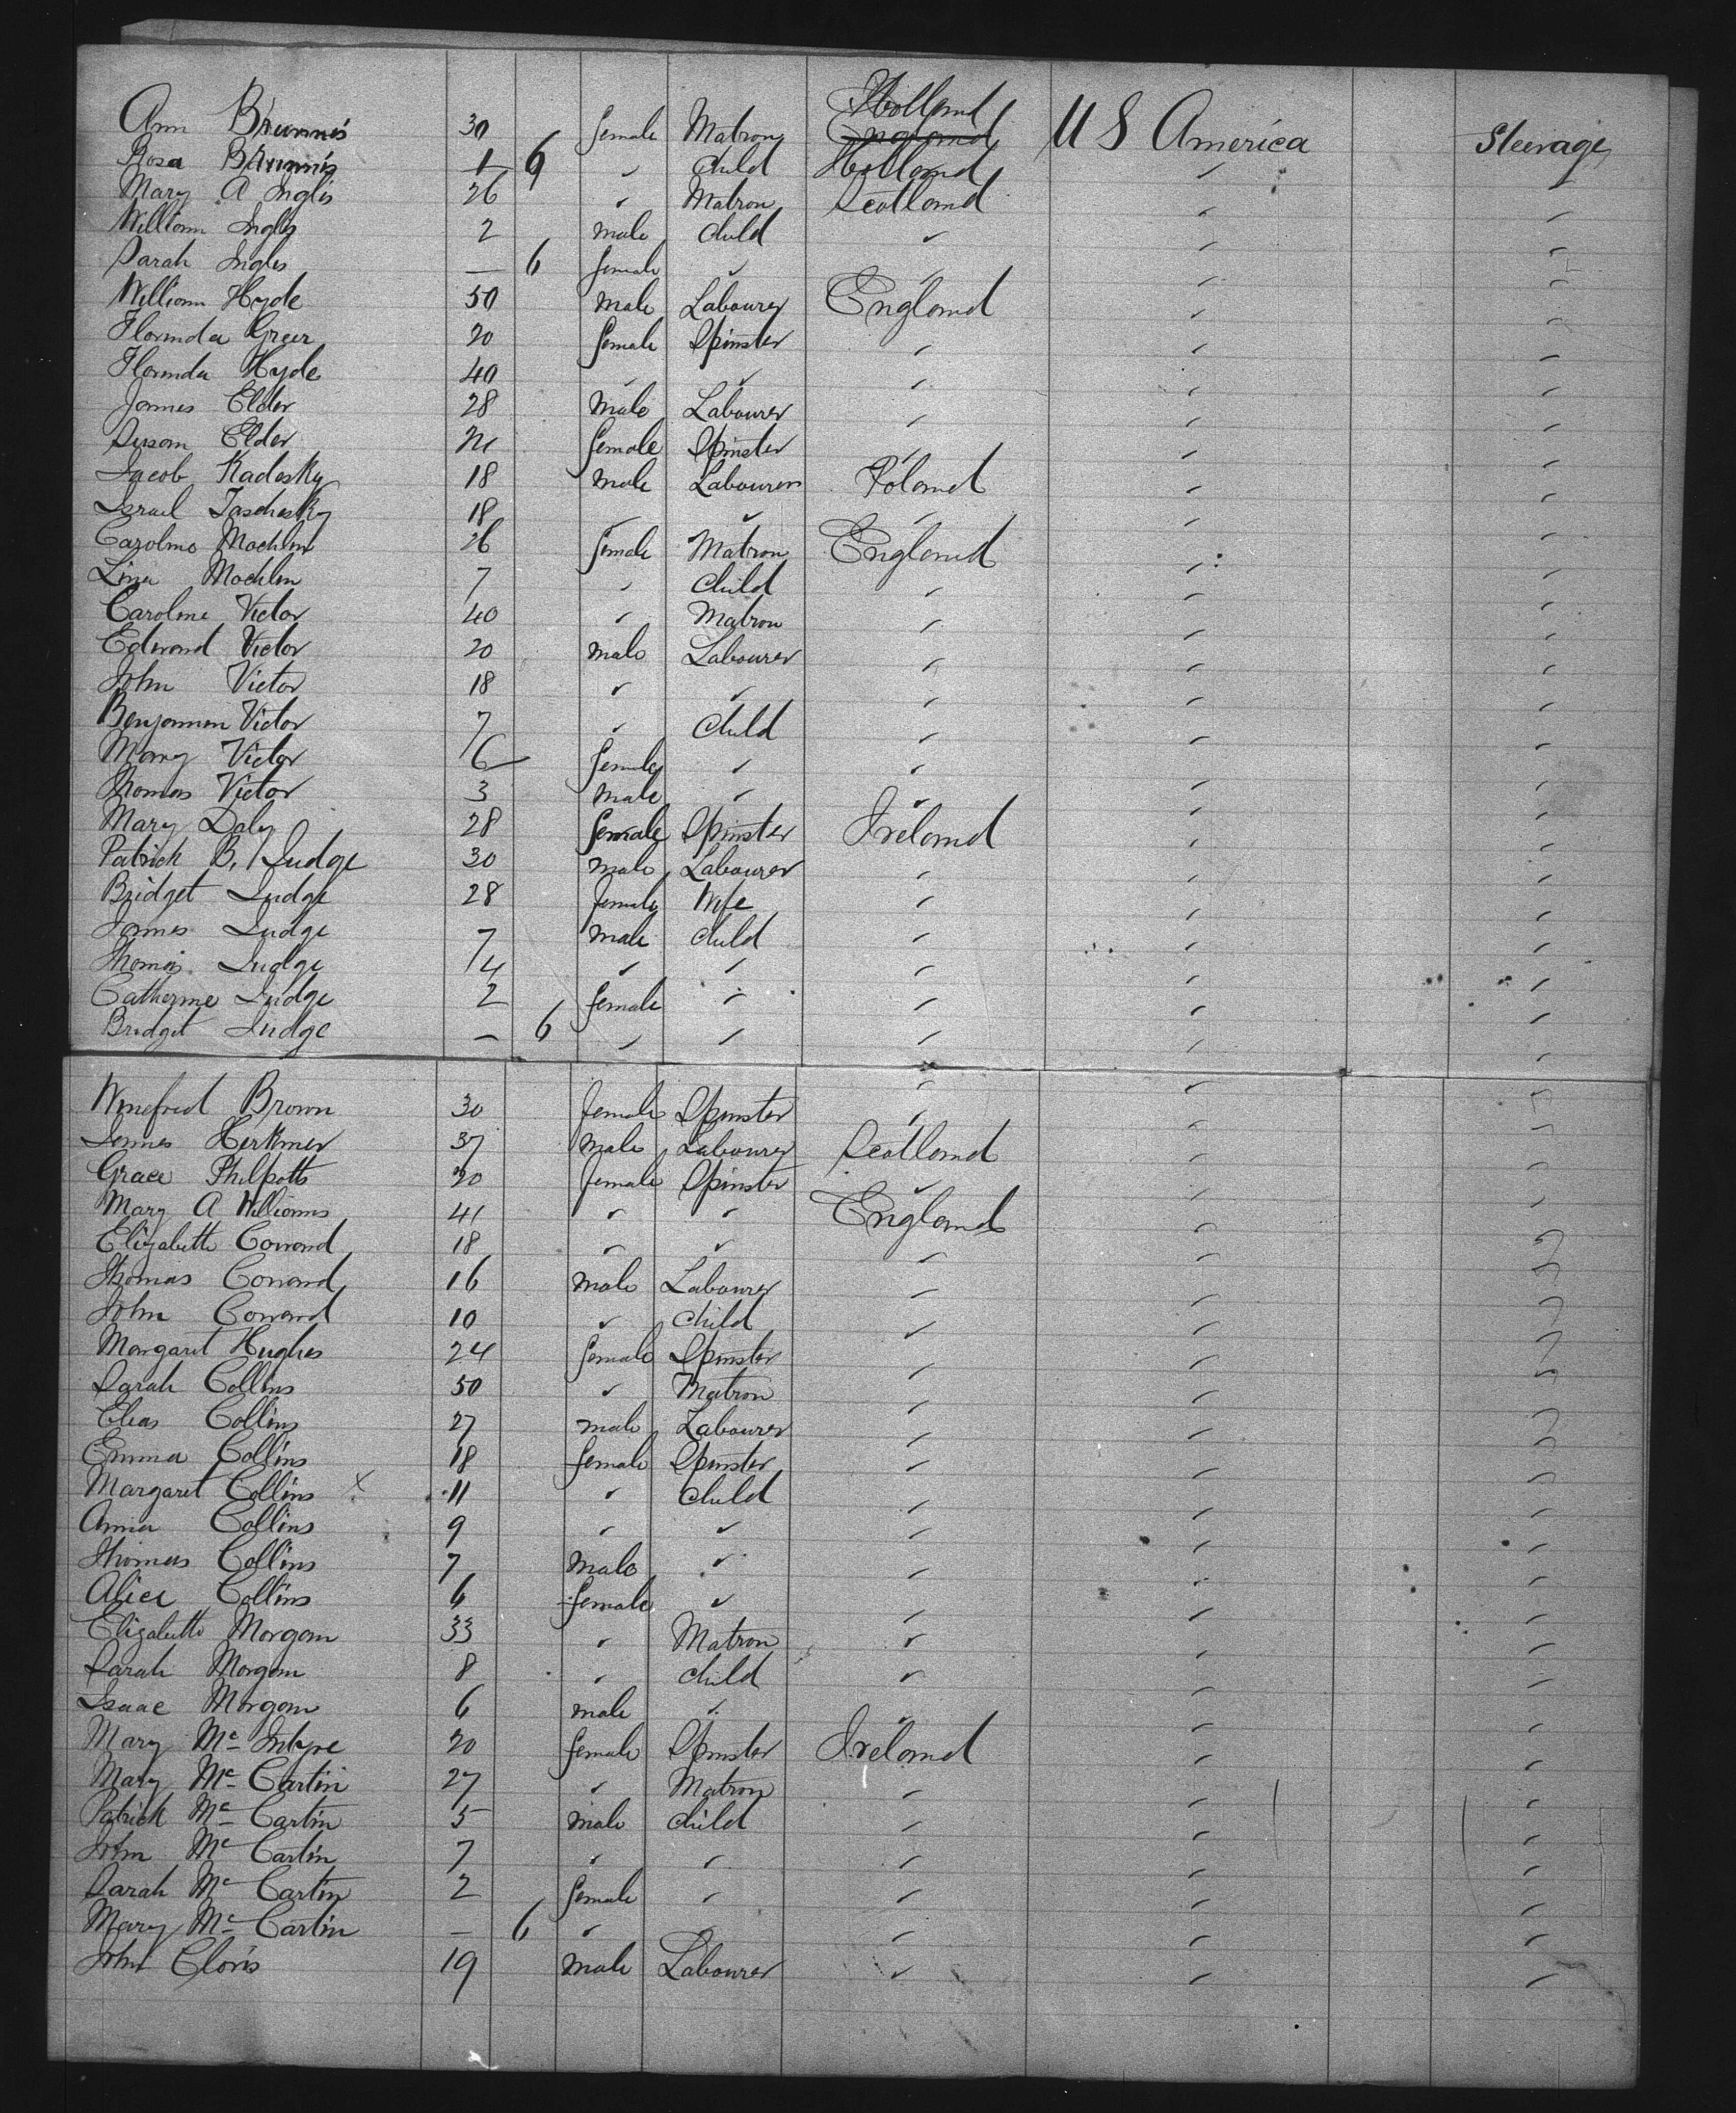 Ann 30 female Matron Holland England U S America Steerage
Rosa 1 6 " Child Holland "
Mary A Inglis 26 " Matron Scotland " "
William Inglis 2 male Child " " "
Sarah Inglis — 6 female " " " "
William Hyde 50 male Labourer England " "
Florinda Greer 20 female Spinster " " "
Florinda Hyde 40 " " " " "
James Elder 28 male Labourer " " "
Susan Elder female Spinster " " "
Jacob Kadesky 18 male Labourer Poland " "
Israel 18 " " " " "
Caroline Machlin 26 female Matron England " "
Lina Machlin 7 " Child " " "
Caroline Victor 40 " Matron " " "
Edward Victor 20 male Labourer " " "
John Victor 18 " " " " "
Benjamin Victor 7 " Child " " "
Mary Victor 6 female " " " "
Thomas Victor 3 male " " " "
Mary Daly 28 female Spinster Ireland " "
Patrick B. Judge 30 male Labourer " " "
Bridget Judge 28 female Wife " " "
James Judge 7 male Child " " "
Thomas Judge 4 " " " " "
Catherine Judge 2 female " " " "
Bridget Judge — 6 " " " " "
Winefred Brown 30 female Spinster " " "
James Herkmer 37 male Labourer Scotland " "
Grace Philpotts 20 female Spinster " " "
Mary A Williams 41 " " England " "
Elizabeth Conrand 18 " " " " "
Thomas Conrand 16 male Labourer " " "
John Conrand 10 " Child " " "
Margaret Hughes 24 female Spinster " " "
Sarah Collins 50 " Matron " " "
Elias Collins 27 male Labourer " " "
Emma Collins 18 female Spinster " " "
Margaret Collins x 11 " Child " " "
Annie Collins 9 " " " " "
Thomas Collins 7 male " " " "
Alice Collins 6 female " " " "
Elizabeth Morgan 33 " Matron " " "
Sarah Morgan 8 " Child " " "
Isaac Morgan 6 male " " " "
Mary Mc Intyre 20 female Spinster Ireland " "
Mary Mc Cartin 27 " Matron " " "
Patrick Mc Cartin 5 male Child " " "
John Mc Cartin 7 " " " " "
Sarah Mc Cartin 2 female " " " "
Mary Mc Cartin — 6 " " " " "
John Cloris 19 male Labourer " " "